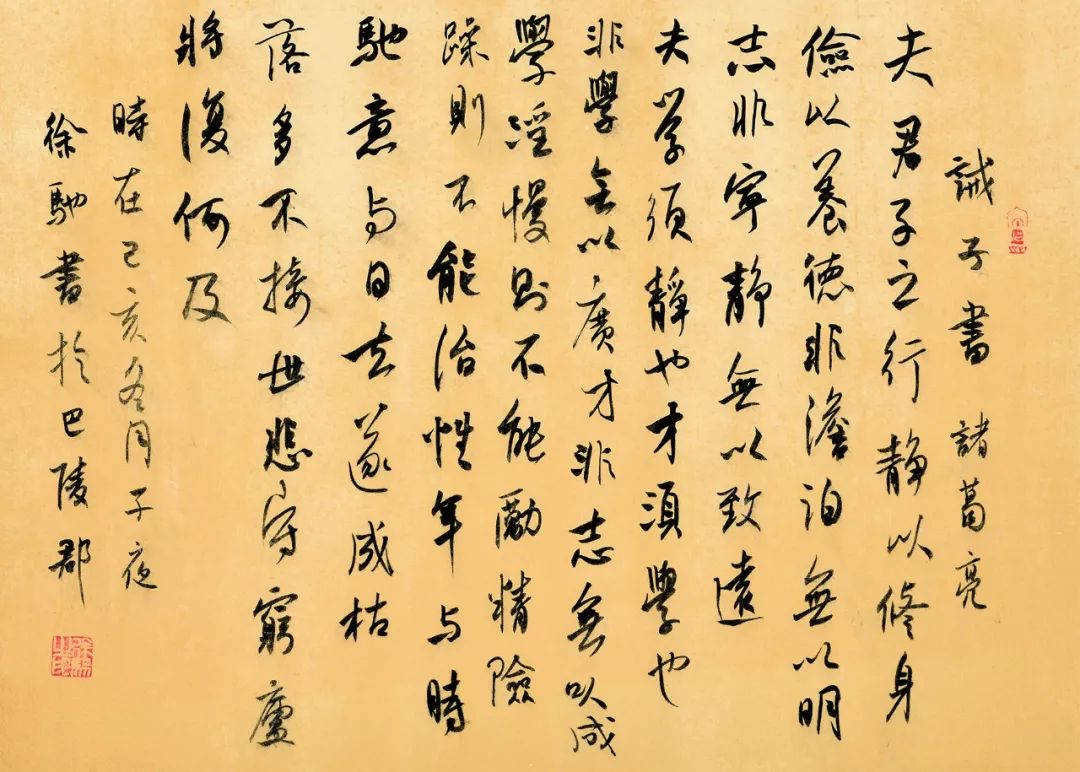 誡子書 諸葛亮
夫君子之行靜以修身
儉以養德非澹泊無以明
志非寧靜無以致遠
夫學須靜也才須學也
非學無以廣才非志無以成
學淫慢則不能勵精險
躁則不能治性年与時
馳意与日去遂成枯
落多不接世悲守窮廬
將復何及
時在己亥冬月子夜
徐馳書於巴陵郡